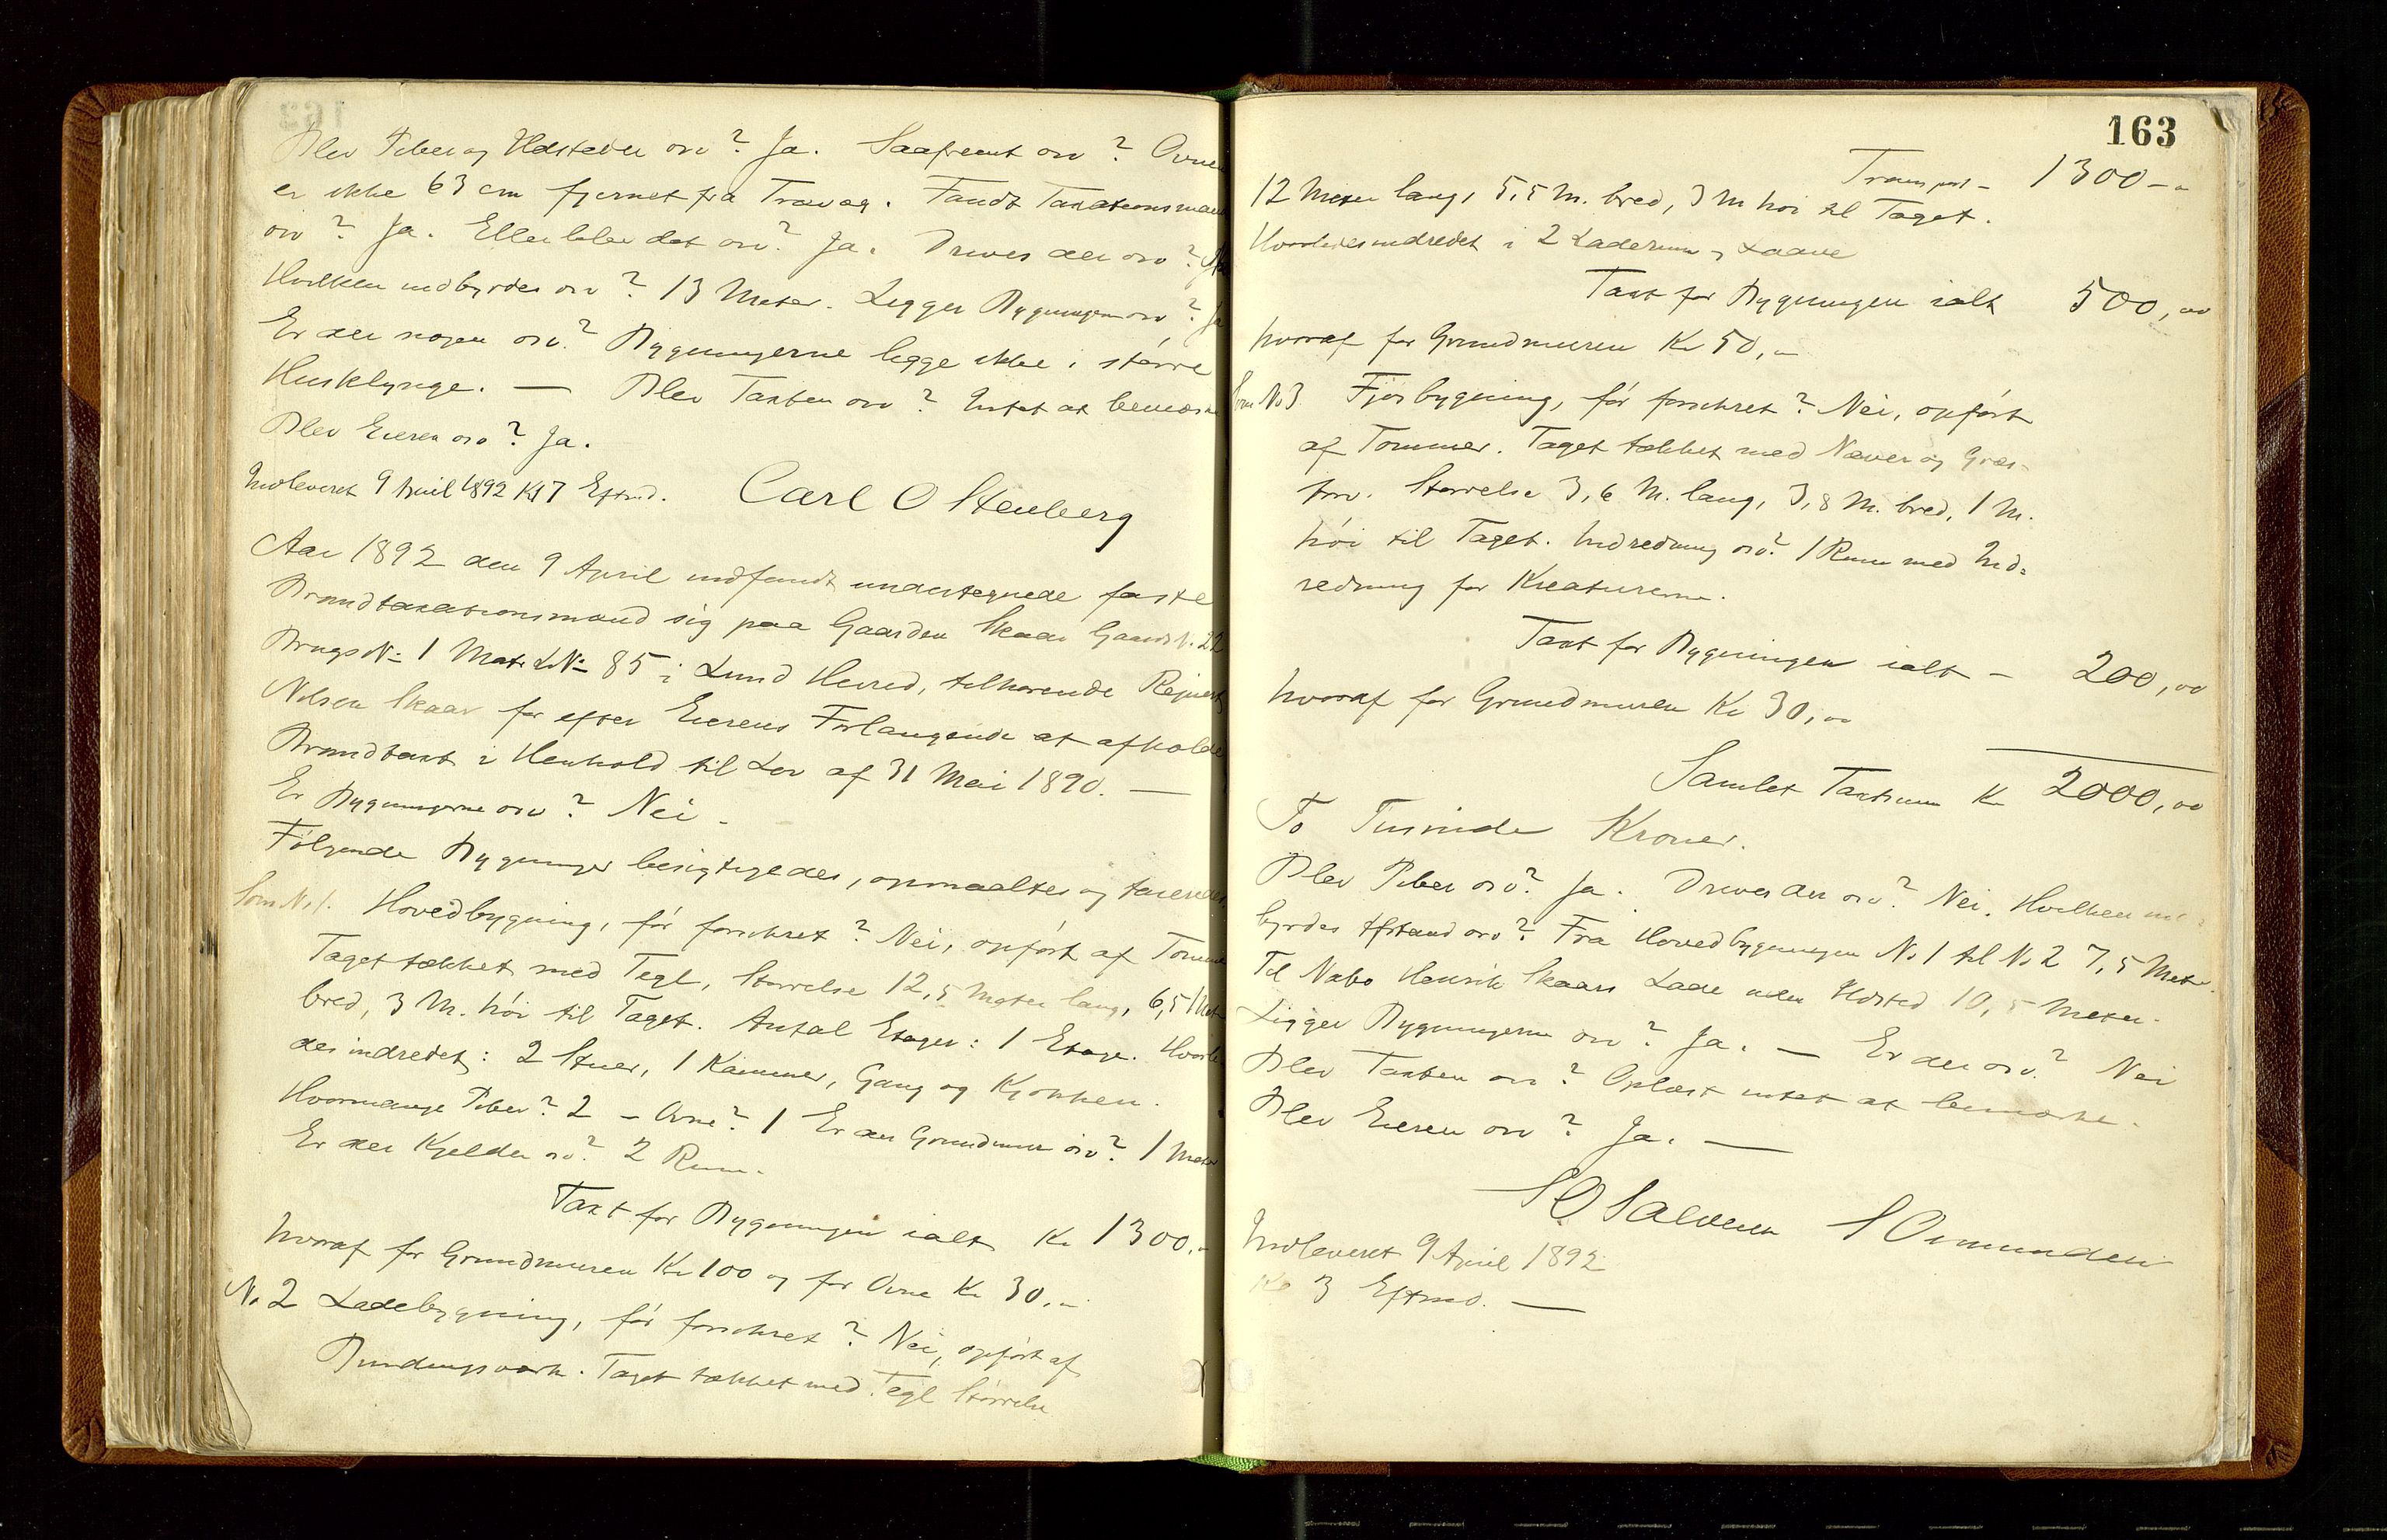 Blev Piber og Ildsteder osv? Ja. Saafremt osv? Ovnen
er ikke 63 cm fjernet fra Trævæg. Fandt Taxationsmænd
osv? Ja. Eller blev det osv? Ja. Drives der osv?
Hvilken indbyrdes osv? 13 Meter. Ligger Bygningen osv? Ja
Er der nogen osv? Bygningerne ligge ikke i større
Husklynge. — Blev Taxten osv? Intet at bemærke
Blev Eieren osv? Ja.
Indleveret 9 April 1892 Kl 7 Eftmd. Carl O Stenberg
Aar 1892 den 9 April indfandt undertegnede faste
Brandtaxationsmænd sig paa Gaarden Skaar Gaards N. 22
Brugs № 1 Matr L № 85 i Lund Herred, tilhørende Rejnert
Nilsen Skaar for efter Eierens Forlangende at afholde
Brandtaxt i Henhold til Lov af 31 Mai 1890. —
Er Bygningerne osv? Nei.
Følgende Bygninger besigtigedes, opmaaltes og taxeredes
Som N. 1. Hovedbygning, før forsikret? Nei, opført af Tømmer
Taget tækket med Tegl, Størrelse 12,5 Meter lang, 6,5 Met
bred, 3 M. høi til Taget. Antal Etager: 1 Etage. Hvorle
des indredet: 2 Stuer, 1 Kammer, Gang og Kjøkken.
Hvormange Piber? 2 – Ovne? 1 Er der Grundmur osv? 1 Meter
Er der Kjelder osv? 2 Rum.
Taxt for Bygningen ialt Kr 1300.-
hvoraf for Grundmuren Kr 100 og for Ovne Kr 30.-
N. 2 Ladebygning, før forsikret? Nei, opført af
Bindingsværk. Taget tækket med Tegl Størrelse
163
Transport – 1300 –
12 Meter lang, 5,5 M. bred, 3 M høi til Taget.
Hvorledes indredet i 2 Laderum og Laave
Taxt for Bygningen ialt 500,00
hvoraf for Grundmuren Kr 50,-
Som N. 3 Fjøsbygning, før forsikret? Nei, opført
af Tømmer. Taget tækket med Næver og Græs-
torv. Størrelse 3,6 M. lang, 3,8 M. bred, 1 M.
høi til Taget. Indredning osv? 1 Rum med Ind=
redning for Kreaturerne.
Taxt for Bygningen ialt – 200,00
hvoraf for Grundmuren Kr 30,00
Samlet Taxtsum Kr 2000,00
To Tusinde Kroner.
Blev Piber osv? Ja. Drives der osv? Nei. Hvilken ind
byrdes Afstand osv? Fra Hovedbygningen N. 1 til N. 2 7,5 Meter.
Til Nabo Henrik Skaars Lade uden Ildsted 10,5 Meter.
Ligger Bygningerne osv? Ja. — Er der osv? Nei
Blev Taxten osv? Oplæst intet at bemærke.
Blev Eieren osv? Ja. —
S O Salvesen S Omundsen
Indleveret 9 April 1892
Kl 3 Eftmd. —